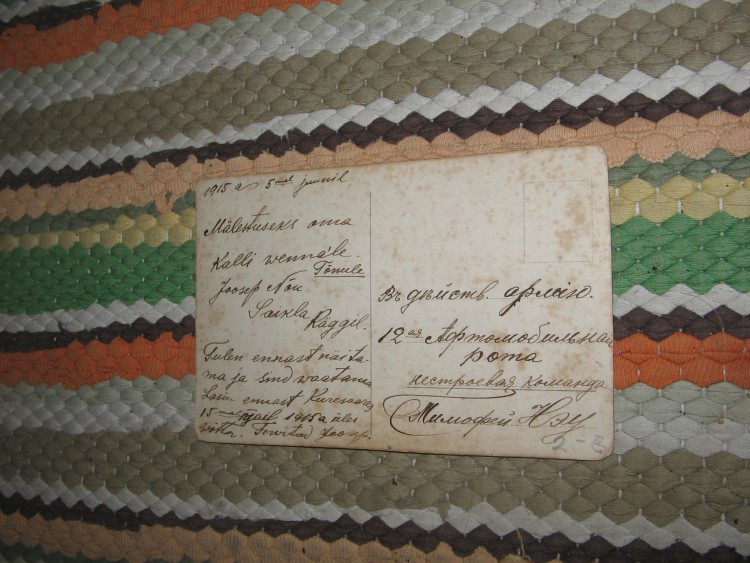 1915 a 5mal junil
Mälestuseks oma
kalli wennale.
Tõnule
Joosep Nõu
Saikla
Räggil.
Tulen ennast näita-
ma ja sind waatama
Lasin ennast Kuresaares
15mal 1915 a üles
wõtta. Terwitad Joosep.
Въ дѣйств. армію.
12ая Автомобильная
рота
нестроевая команда
Тимофей Нэу
2.-